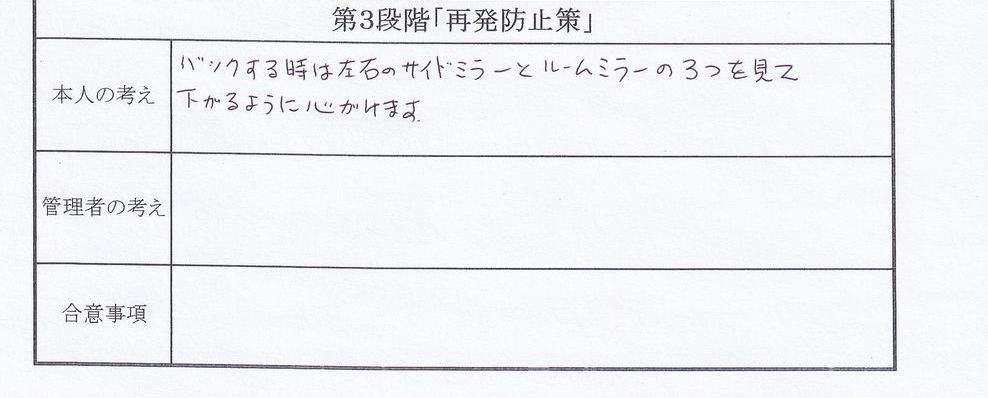 第3段階「再発防止策」
本人の考え
バックする時は左右のサイドミラーとルームミラーの3つを見て
下がるように心がけます
管理者の考え
合意事項